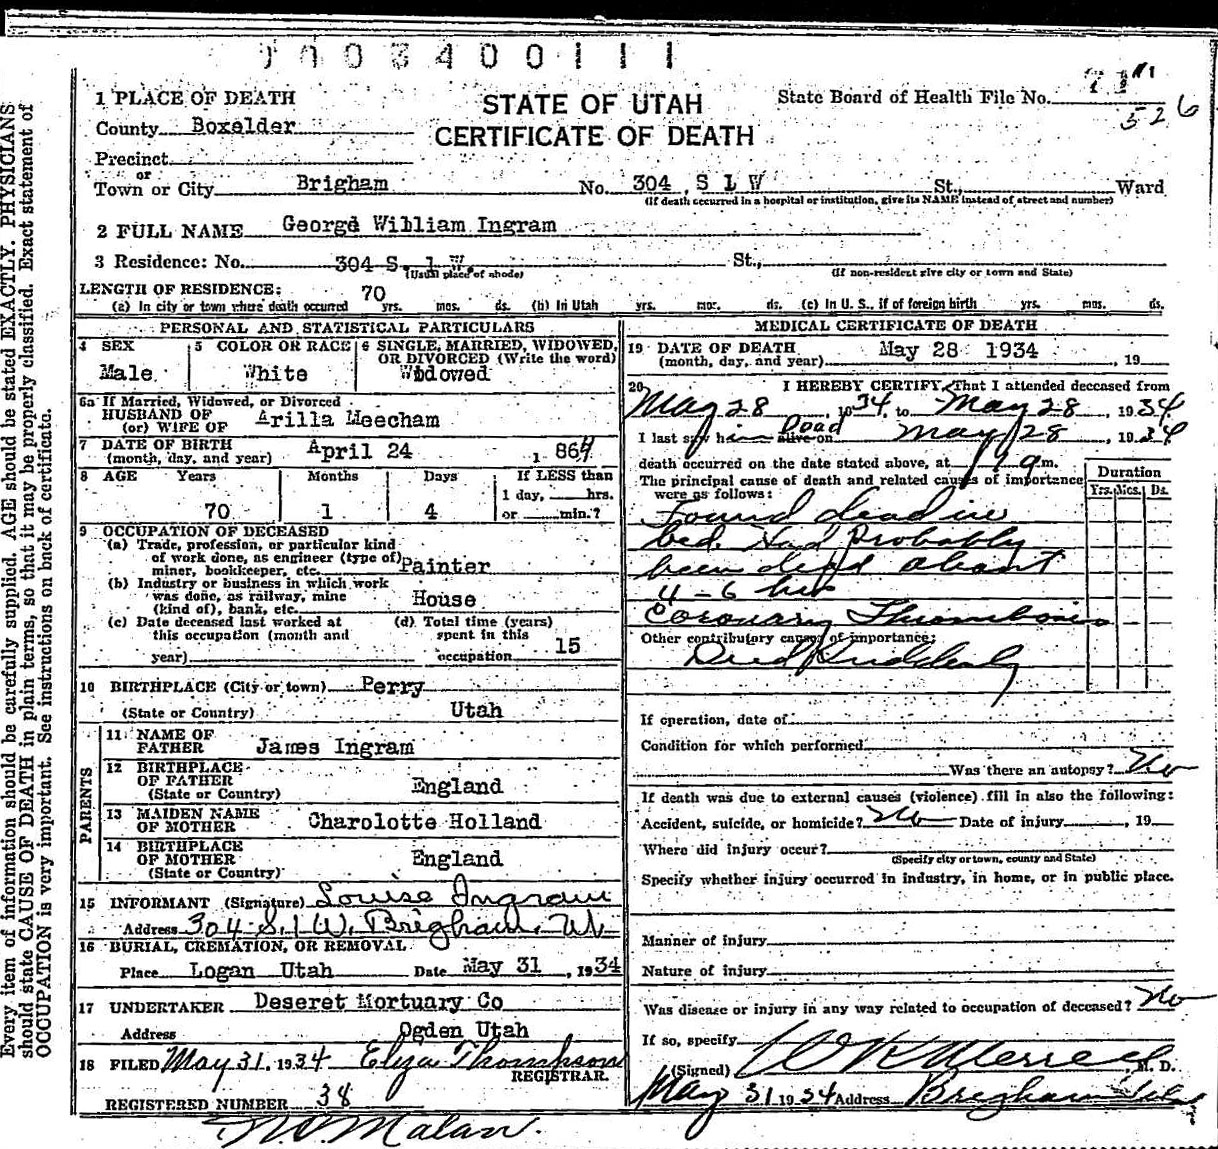 1003400111
1 PLACE OF DEATH
STATE OF UTAH
CERTIFICATE OF DEATH
State Board of Health File No. 71
526
County Boxelder
Precinct
or
Town or City Brigham No. 304 S 1 W St., Ward
(If death occurred in a hospital or institution, give its NAME instead of street and number)
2 FULL NAME George William Ingram
3 Residence: No. 304 S. 1 W. St.,
(Usual place of abode) (If non-resident give city or town and State)
LENGTH OF RESIDENCE:
(a) In city or town where death occurred 70 yrs. mos. ds. (b) In Utah yrs. mos. ds. (c) In U. S., if of foreign birth yrs. mos. ds.
PERSONAL AND STATISTICAL PARTICULARS
4 SEX
Male
5 COLOR OR RACE
White
6 SINGLE, MARRIED, WIDOWED,
OR DIVORCED (Write the word)
Widowed
6a If Married, Widowed, or Divorced
HUSBAND OF
(or) WIFE OF Arilla Meecham
7 DATE OF BIRTH
(month, day, and year) April 24 1864
8 AGE Years Months Days If LESS than
1 day, hrs.
70 1 4 or min.?
9 OCCUPATION OF DECEASED
(a) Trade, profession, or particular kind
of work done, as engineer (type of)
miner, bookkeeper, etc. Painter
(b) Industry or business in which work
was done, as railway, mine
(kind of), bank, etc. House
(c) Date deceased last worked at
this occupation (month and
year)
(d) Total time (years)
spent in this
occupation 15
10 BIRTHPLACE (City or town) Perry
(State or Country) Utah
PARENTS
11 NAME OF
FATHER James Ingram
12 BIRTHPLACE
OF FATHER England
(State or Country)
13 MAIDEN NAME
OF MOTHER Charolotte Holland
14 BIRTHPLACE
OF MOTHER England
(State or Country)
15 INFORMANT (Signature) Louise Ingram
Address 304 S. 1 W. Brigham, Ut.
16 BURIAL, CREMATION, OR REMOVAL
Place Logan Utah Date May 31, 1934
17 UNDERTAKER Deseret Mortuary Co
Address Ogden Utah
18 FILED May 31, 1934 Eliza Thompson
REGISTRAR.
REGISTERED NUMBER 38
Malan.
MEDICAL CERTIFICATE OF DEATH
19 DATE OF DEATH
(month, day, and year) May 28 1934, 19
20 I HEREBY CERTIFY, That I attended deceased from
May 28, 1934, to May 28, 1934
I last saw him alive on Dead May 28, 1934
death occurred on the date stated above, at m.
The principal cause of death and related causes of importance
were as follows:
Duration
Yrs. Mos. Ds.
Found dead in
bed. Had Probably
been dead about
4-6 hrs
Coronary Thrombosis
Other contributory causes of importance:
Died Suddenly
If operation, date of
Condition for which performed
Was there an autopsy? No
If death was due to external causes (violence) fill in also the following:
Accident, suicide, or homicide? No Date of injury, 19
Where did injury occur?
(Specify city or town, county and State)
Specify whether injury occurred in industry, in home, or in public place.
Manner of injury
Nature of injury
Was disease or injury in any way related to occupation of deceased? No
If so, specify
(Signed) W R Merrell, M. D.
May 31 1934 Address Brigham Utah
Every item of information should be carefully supplied. AGE should be stated EXACTLY. PHYSICIANS
should state CAUSE OF DEATH in plain terms, so that it may be properly classified. Exact statement of
OCCUPATION is very important. See instructions on back of certificate.